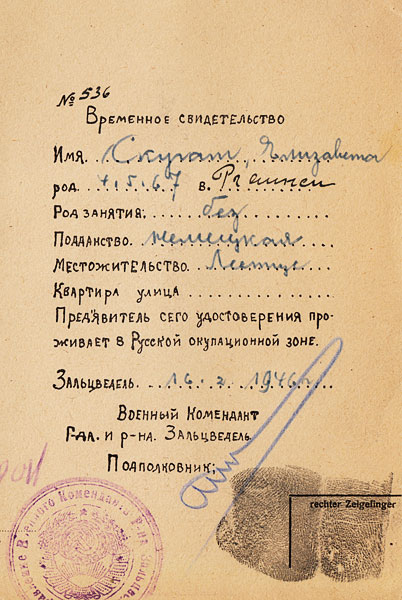 № 536
Временное свидетельство
Имя. Скугат, Элизавета
род. 4.5.67 в.
Род занятия: без
Подданство. немецкая
Местожительство.
Квартира улица
Пред'явитель сего удостоверения про-
живает в Русской окупационной зоне.
Зальцведель. 16. 2. 1946
Военный Комендант
Г-да. и р-на. Зальцведель
Подполковник:
rechter Zeigefinger